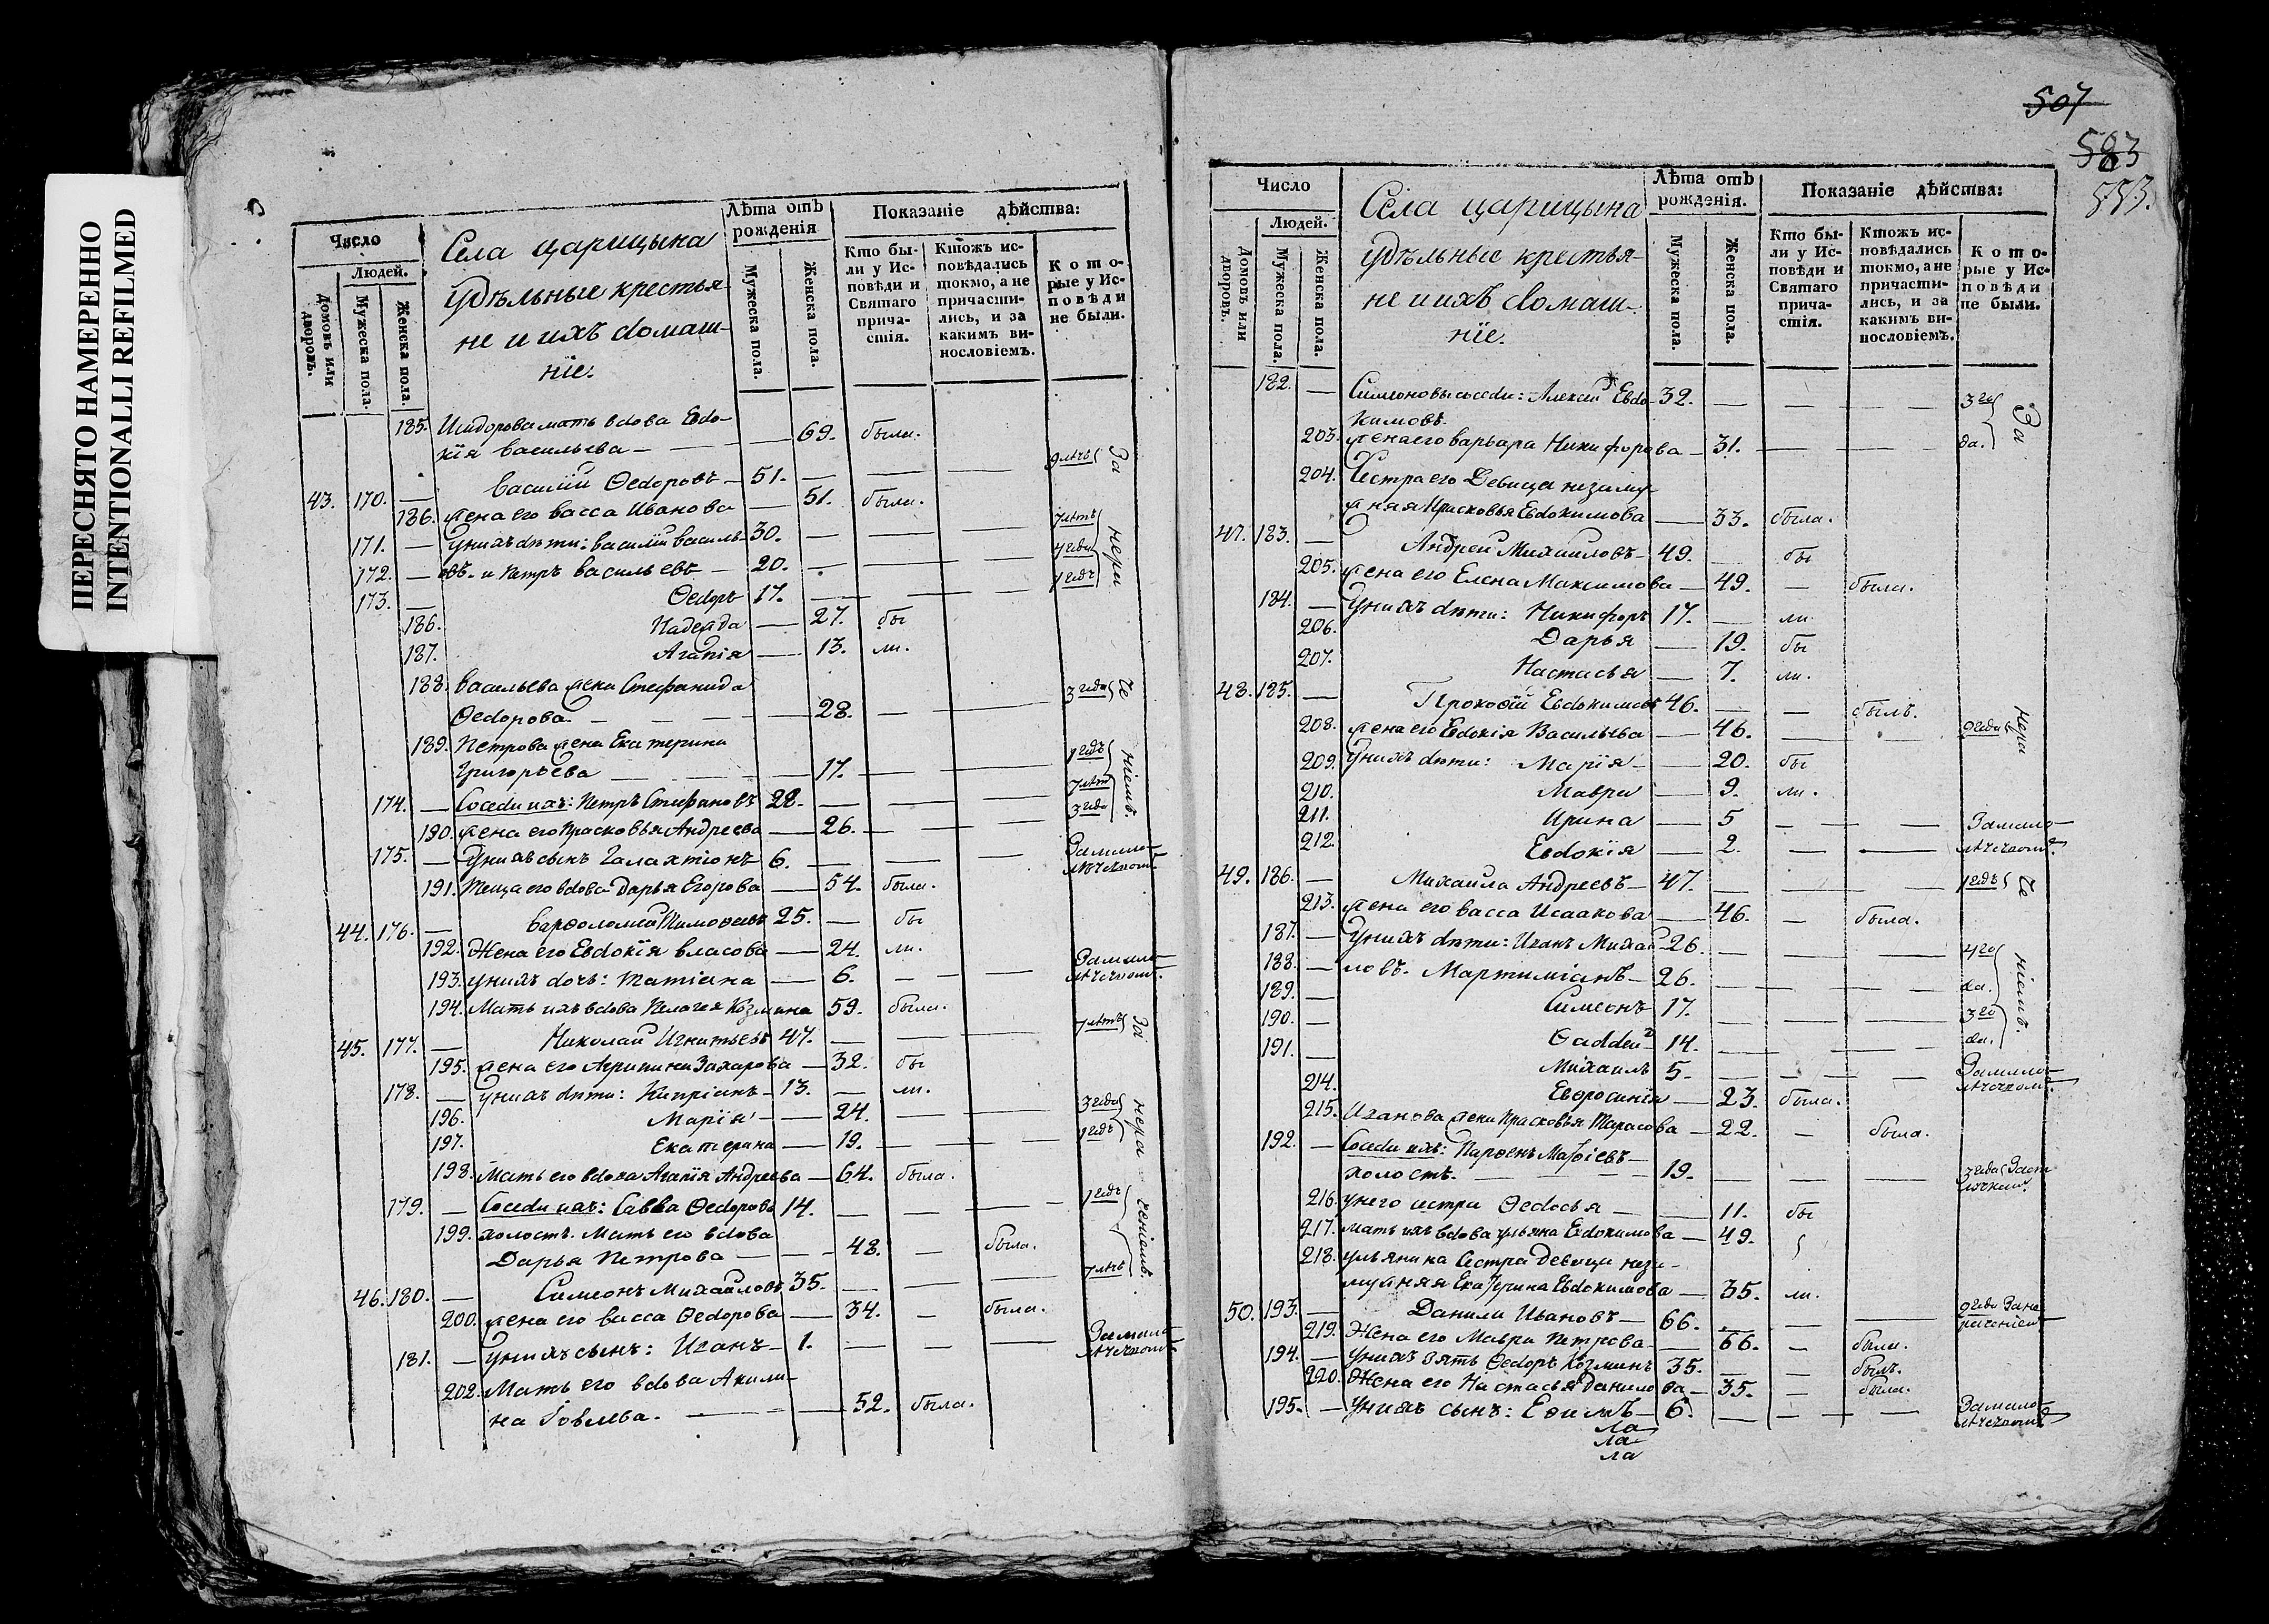 ПЕРЕСНЯТО НАМЕРЕННО
INTENTIONALLI REFILMED
Число
Людей.
Домовъ или дворовъ.
Мужеска пола.
Женска пола.
Села царицына
удѣльные крестья-
не и ихъ домаш-
нїе.
Лѣта отъ рожденія
Мужеска пола.
Женска пола.
Показаніе дѣйства:
Кто бы-
ли у Ис-
повѣди и
Святаго
прича-
стія.
Ктожъ ис-
повѣдались
токмо, а не
причасти-
лись, и за
какимъ ви-
нословіемъ.
Кото-
рые у Ис-
повѣди
не были.
185. Исидорова мать вдова Евдо-
кїя Васильева — 69. была.
43. 170. — Василий Ѳедоровъ — 51. — — — 9 лѣтъ За
186. жена его Васса Иванова — 51. была.
171. — У нихъ дѣти: Василїй Василь- 30. — — — 7 лѣтъ
172. — евъ. и Петръ Васильевъ — 20. — — — 4 года
173. — Ѳедоръ 17. — — — 1 годъ нера
186. Надежда — 27. бы
187. Агапїя — 13. ли.
188. Васильева жена Стефанида
Ѳедорова — 28. — — 3 года че
189. Петрова жена Екатерина
Григорьева — 17. — — 1 годъ
174. — Соседи ихъ: Петръ Стефановъ 28. — — — 7 лѣт
190. жена его Прасковья Андреева — 26. — — — 3 года ніемъ.
175. — У нихъ сынъ Галахтіонъ 6. — — — За мало-
лѣтством
191. Теща его вдова Дарья Егорова — 54. была.
44. 176. — Варѳоломей Тимоѳеевъ 25. — бы
192. Жена его Евдокїя Власова — 24. ли.
193. У нихъ дочь: Татіана — 6. — — — За мало-
лѣтством.
194. Мать ихъ вдова Пелагея Козмина 59. была.
45. 177. — Николай Игнатьевъ 47. — — — 7 лѣтъ За
195. жена его Агрипина Захарова — 32. бы
178. — У нихъ дѣти: Кипріанъ — 13. — ли.
196. Марія — 24. — — — 3 года
197. Екатерина — 19. — — — 1 годъ нера
198. Мать его вдова Агапїя Андреева — 64. была.
179. — Соседи ихъ: Савва Ѳедоровъ 14. — — — 1 годъ
199. холостъ. Мать его вдова
Дарья Петрова — 48. — была.
46. 180. — Симеонъ Михайловъ 35. — — — 7 лѣтъ ченіемъ.
200. жена его Васса Ѳедорова — 34. — была.
181. — У нихъ сынъ: Иванъ — 1. — — — За мало-
лѣтством
202. Мать его вдова Акили-
на Іовлева. — 52. была.
507
583
553.
Число
Людей.
Домовъ или дворовъ.
Мужеска пола.
Женска пола.
Села царицына
удѣльные крестья-
не и ихъ домаш-
нїе.
Лѣта отъ рожденія.
Мужеска пола.
Женска пола.
Показаніе дѣйства:
Кто бы-
ли у Ис-
повѣди и
Святаго
прича-
стія.
Ктожъ ис-
повѣдались
токмо, а не
причасти-
лись, и за
какимъ ви-
нословіемъ.
Кото-
рые у Ис-
повѣди
не были.
182. — Симеоновы соседи: Алексей Евдо- 32. — — — 3 го
кимовъ.
203. жена его Варвара Никифорова — 31. — — — да. За
204. Сестра его Девица незаму-
жняя Прасковья Евдокимова — 33. была.
47. 183. — Андрей Михайловъ — 49. — бы
205. жена его Елена Максимова — 49. — была.
184. — У нихъ дѣти: Никифоръ 17. — ли.
206. Дарья — 19. бы
207. Настасья — 7. ли.
48. 185. — Прокоѳїй Евдокимовъ 46. — — былъ.
208. жена его Евдокія Васильева — 46. — — 9 года нера
209. У нихъ дѣти: Марїя — 20. бы
210. Мавра — 9. ли.
211. Ирина — 5 — — — За мало-
212. Евдокїя — 2. — — лѣтством.
49. 186. — Михаила Андреевъ — 47. — — — 1 годъ че
213. жена его Васса Исаакова — 46. — была.
187. — У нихъ дѣти: Иванъ Михай- 26. — — — 4 го
188. — ловъ. Мартиміанъ — 26. — — — да.
189. — Симеонъ 17. — — — 3 го
190. — Ѳаддей — 14. — — — да. ніемъ.
191. — Михаилъ 5. — — — За мало-
лѣтством.
214. Евѳросинїя — 23. была.
215. Иванова жена Прасковья Тарасова — 22. — была.
192. — Соседи ихъ: Парѳенъ Маѳіевъ —
холостъ. — 19. — — — 3 года
216. У него сестра Ѳедосья — 11. бы
217. Мать ихъ вдова Ульяна Евдокимова — 49.
218. Ульянина Сестра Девица неза-
мужняя Екатерина Евдокимова — 35. ли.
50. 193. — Данила Ивановъ — 66. — — — 2 года За не
раченіем
219. Жена его Мавра Петрова — 66. — была.
194. — У нихъ зять Ѳедоръ Козминъ 35. — — былъ.
220. Жена его Настасья Данилова — 35. — была.
195. — У нихъ сынъ: Еѳимъ — 6. — — — За мало-
лѣтством
ла
ла
ла